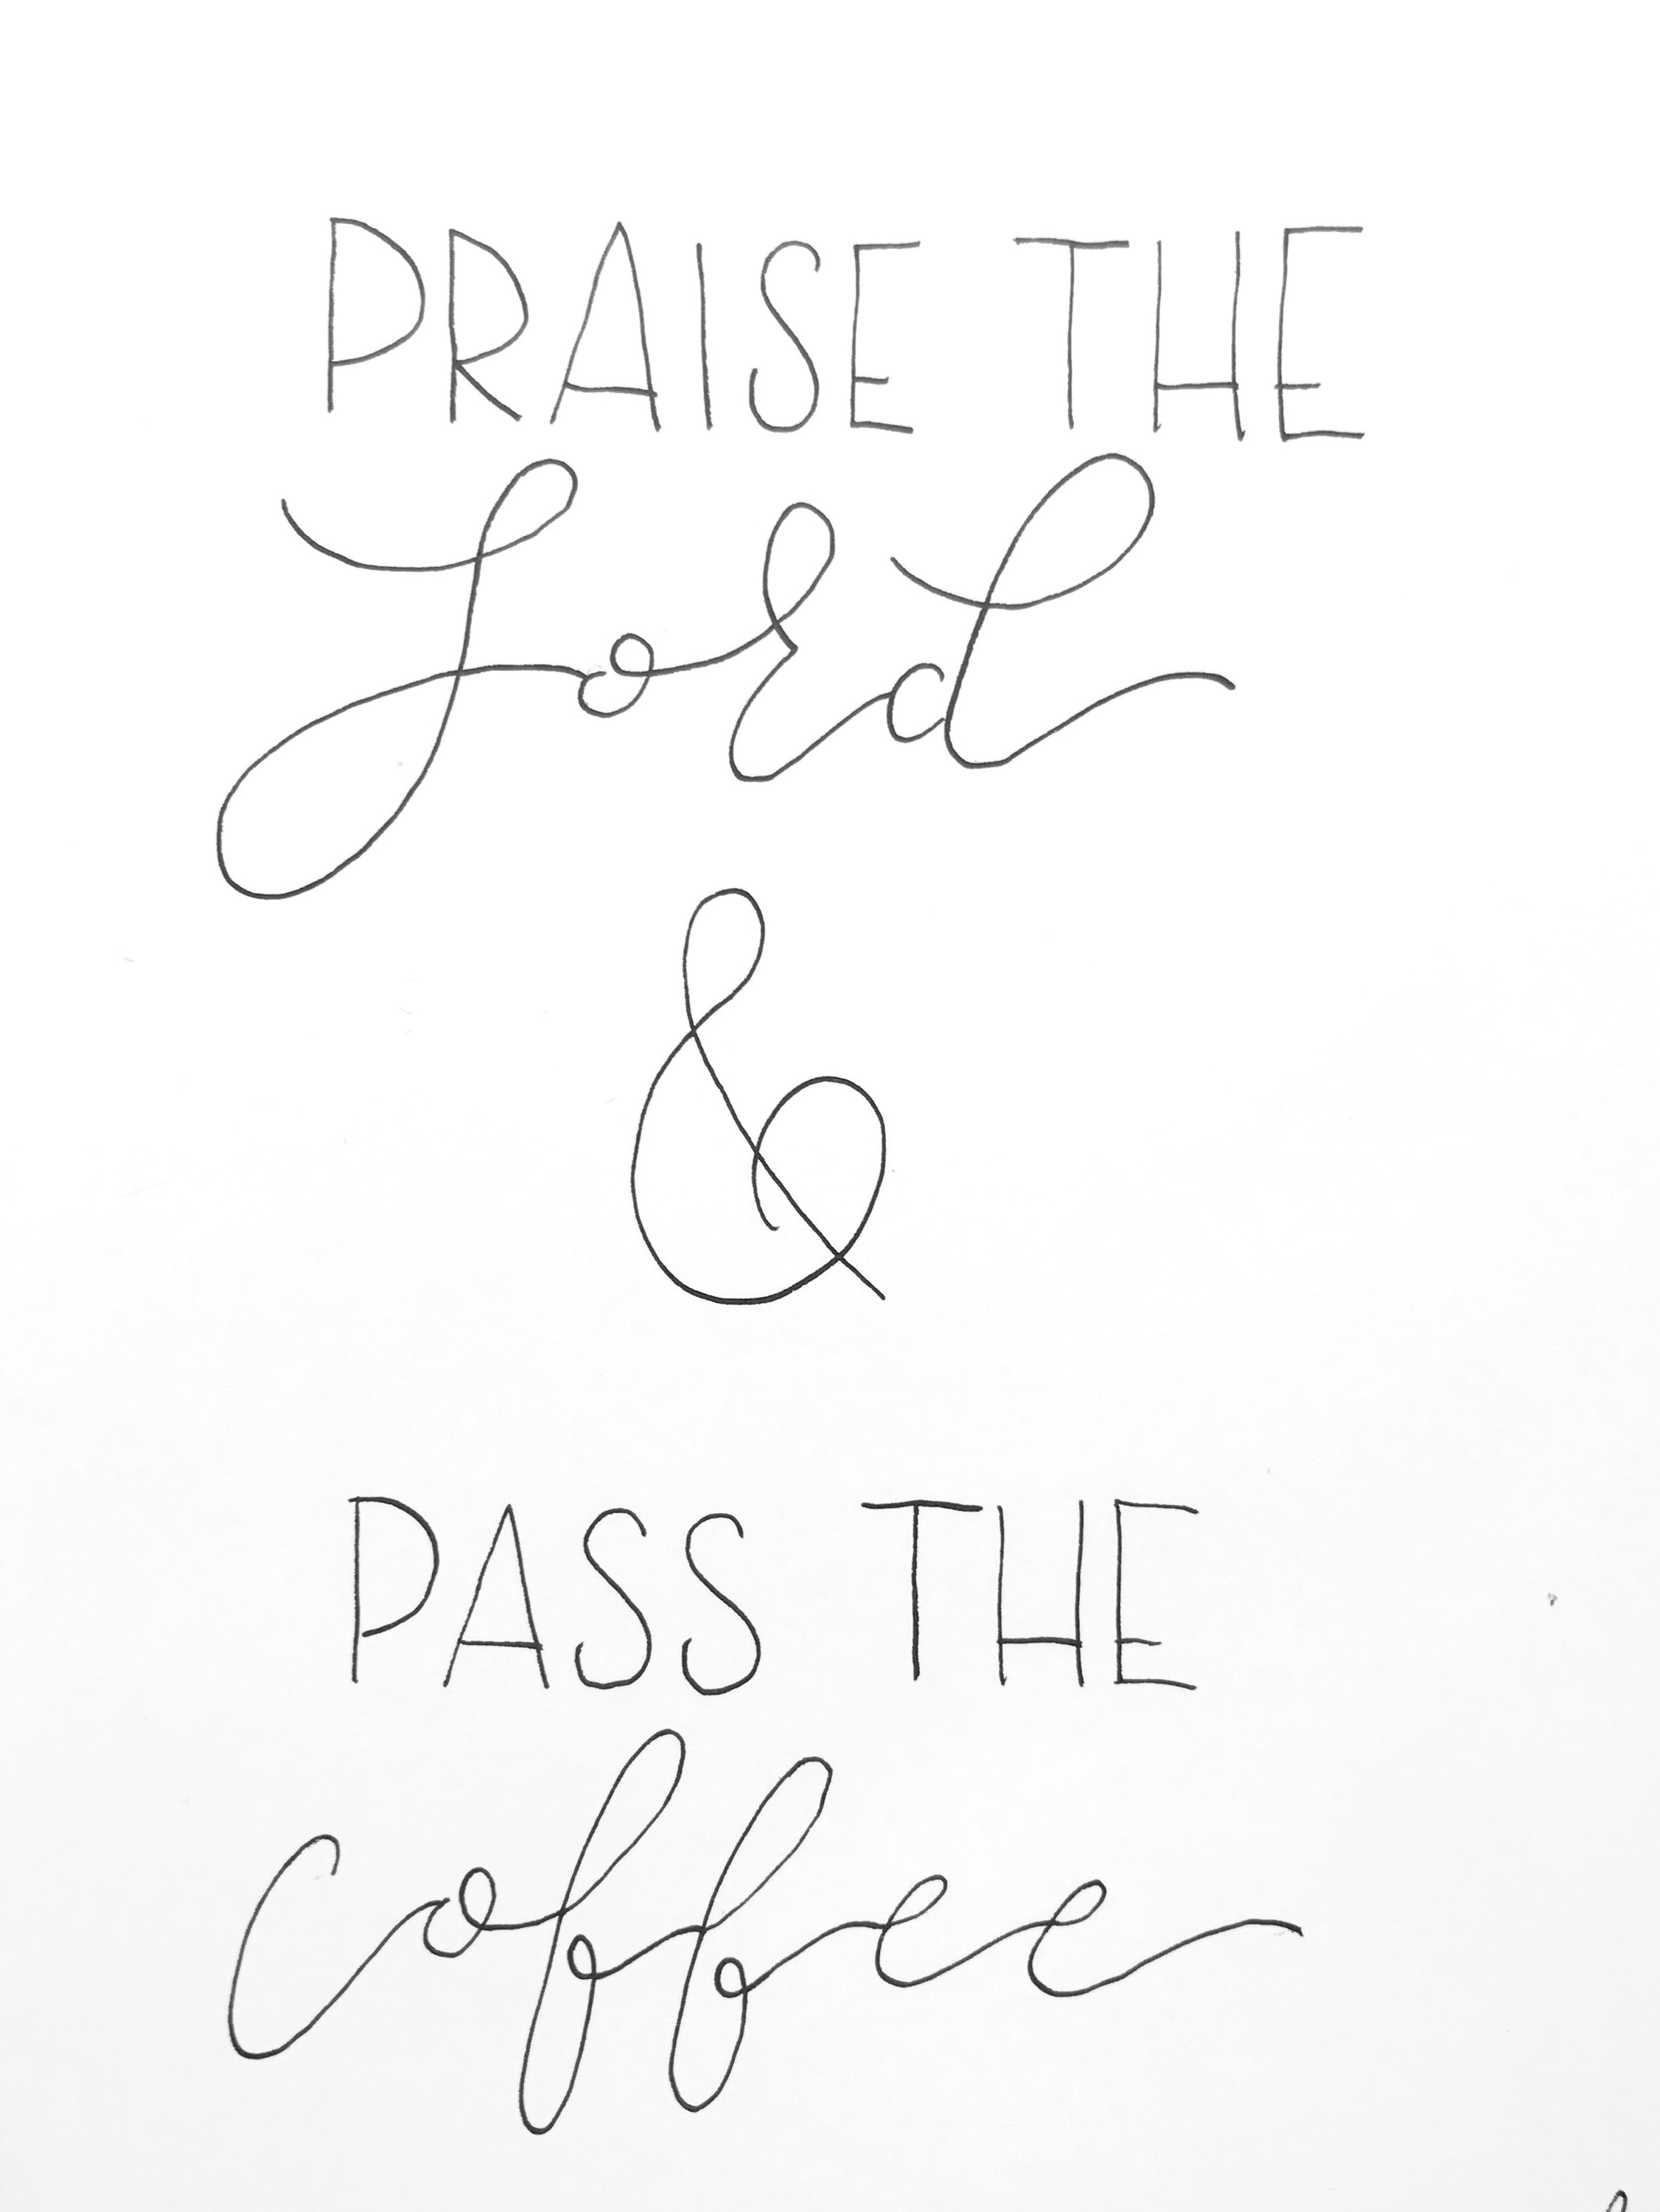 PRAISE THE
Lord
&
PASS THE
coffee